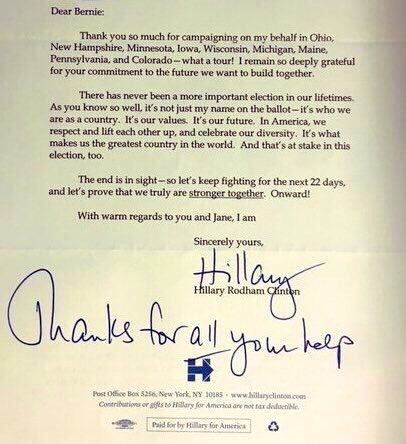 Dear Bernie:
Thank you so much for campaigning on my behalf in Ohio,
New Hampshire, Minnesota, Iowa, Wisconsin, Michigan, Maine,
Pennsylvania, and Colorado—what a tour! I remain so deeply grateful
for your commitment to the future we want to build together.
There has never been a more important election in our lifetimes.
As you know so well, it's not just my name on the ballot—it's who we
are as a country. It's our values. It's our future. In America, we
respect and lift each other up, and celebrate our diversity. It's what
makes us the greatest country in the world. And that's at stake in this
election, too.
The end is in sight—so let's keep fighting for the next 22 days,
and let's prove that we truly are stronger together. Onward!
With warm regards to you and Jane, I am
Sincerely yours,
Hillary
Hillary Rodham Clinton
Thanks for all your help
H
Post Office Box 5256, New York, NY 10185 · www.hillaryclinton.com
Contributions or gifts to Hillary for America are not tax deductible.
Paid for by Hillary for America